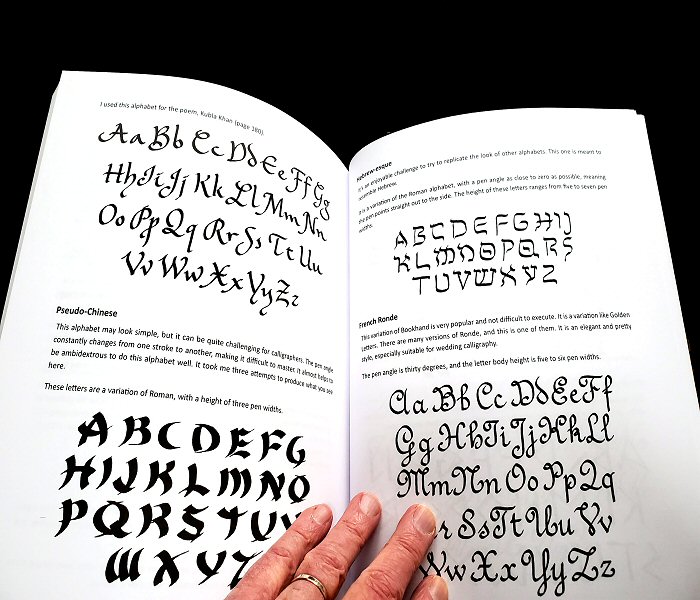 I used this alphabet for the poem, Kubla Khan (page 180).
Aa Bb Cc Dd Ee Ff Gg
Hh Ii Jj Kk Ll Mm Nn
Oo Pp Qq Rr Ss Tt Uu
Vv Ww Xx Yy Zz
Pseudo-Chinese
This alphabet may look simple, but it can be quite challenging for calligraphers. The pen angle
constantly changes from one stroke to another, making it difficult to master. It almost helps to
be ambidextrous to do this alphabet well. It took me three attempts to produce what you see
here.
These letters are a variation of Roman, with a height of three pen widths.
A B C D E F G
H I J K L M N O
P Q R S T U V
W X Y Z
Hebrew-esque
It's an enjoyable challenge to try to replicate the look of other alphabets. This one is meant to
resemble Hebrew.
It is a variation of the Roman alphabet, with a pen angle as close to zero as possible, meaning
the pen points straight out to the side. The height of these letters ranges from five to seven pen
widths.
A B C D E F G H I J
K L M N O P Q R S
T U V W X Y Z
French Ronde
This variation of Bookhand is very popular and not difficult to execute. It is a variation like Golden
Letters. There are many versions of Ronde, and this is one of them. It is an elegant and pretty
style, especially suitable for wedding calligraphy.
The pen angle is thirty degrees, and the letter body height is five to six pen widths.
Aa Bb Cc Dd Ee Ff
Gg Hh Ii Jj Kk Ll
Mm Nn Oo Pp Qq
r Ss Tt Uu Vv
Ww Xx Yy Zz